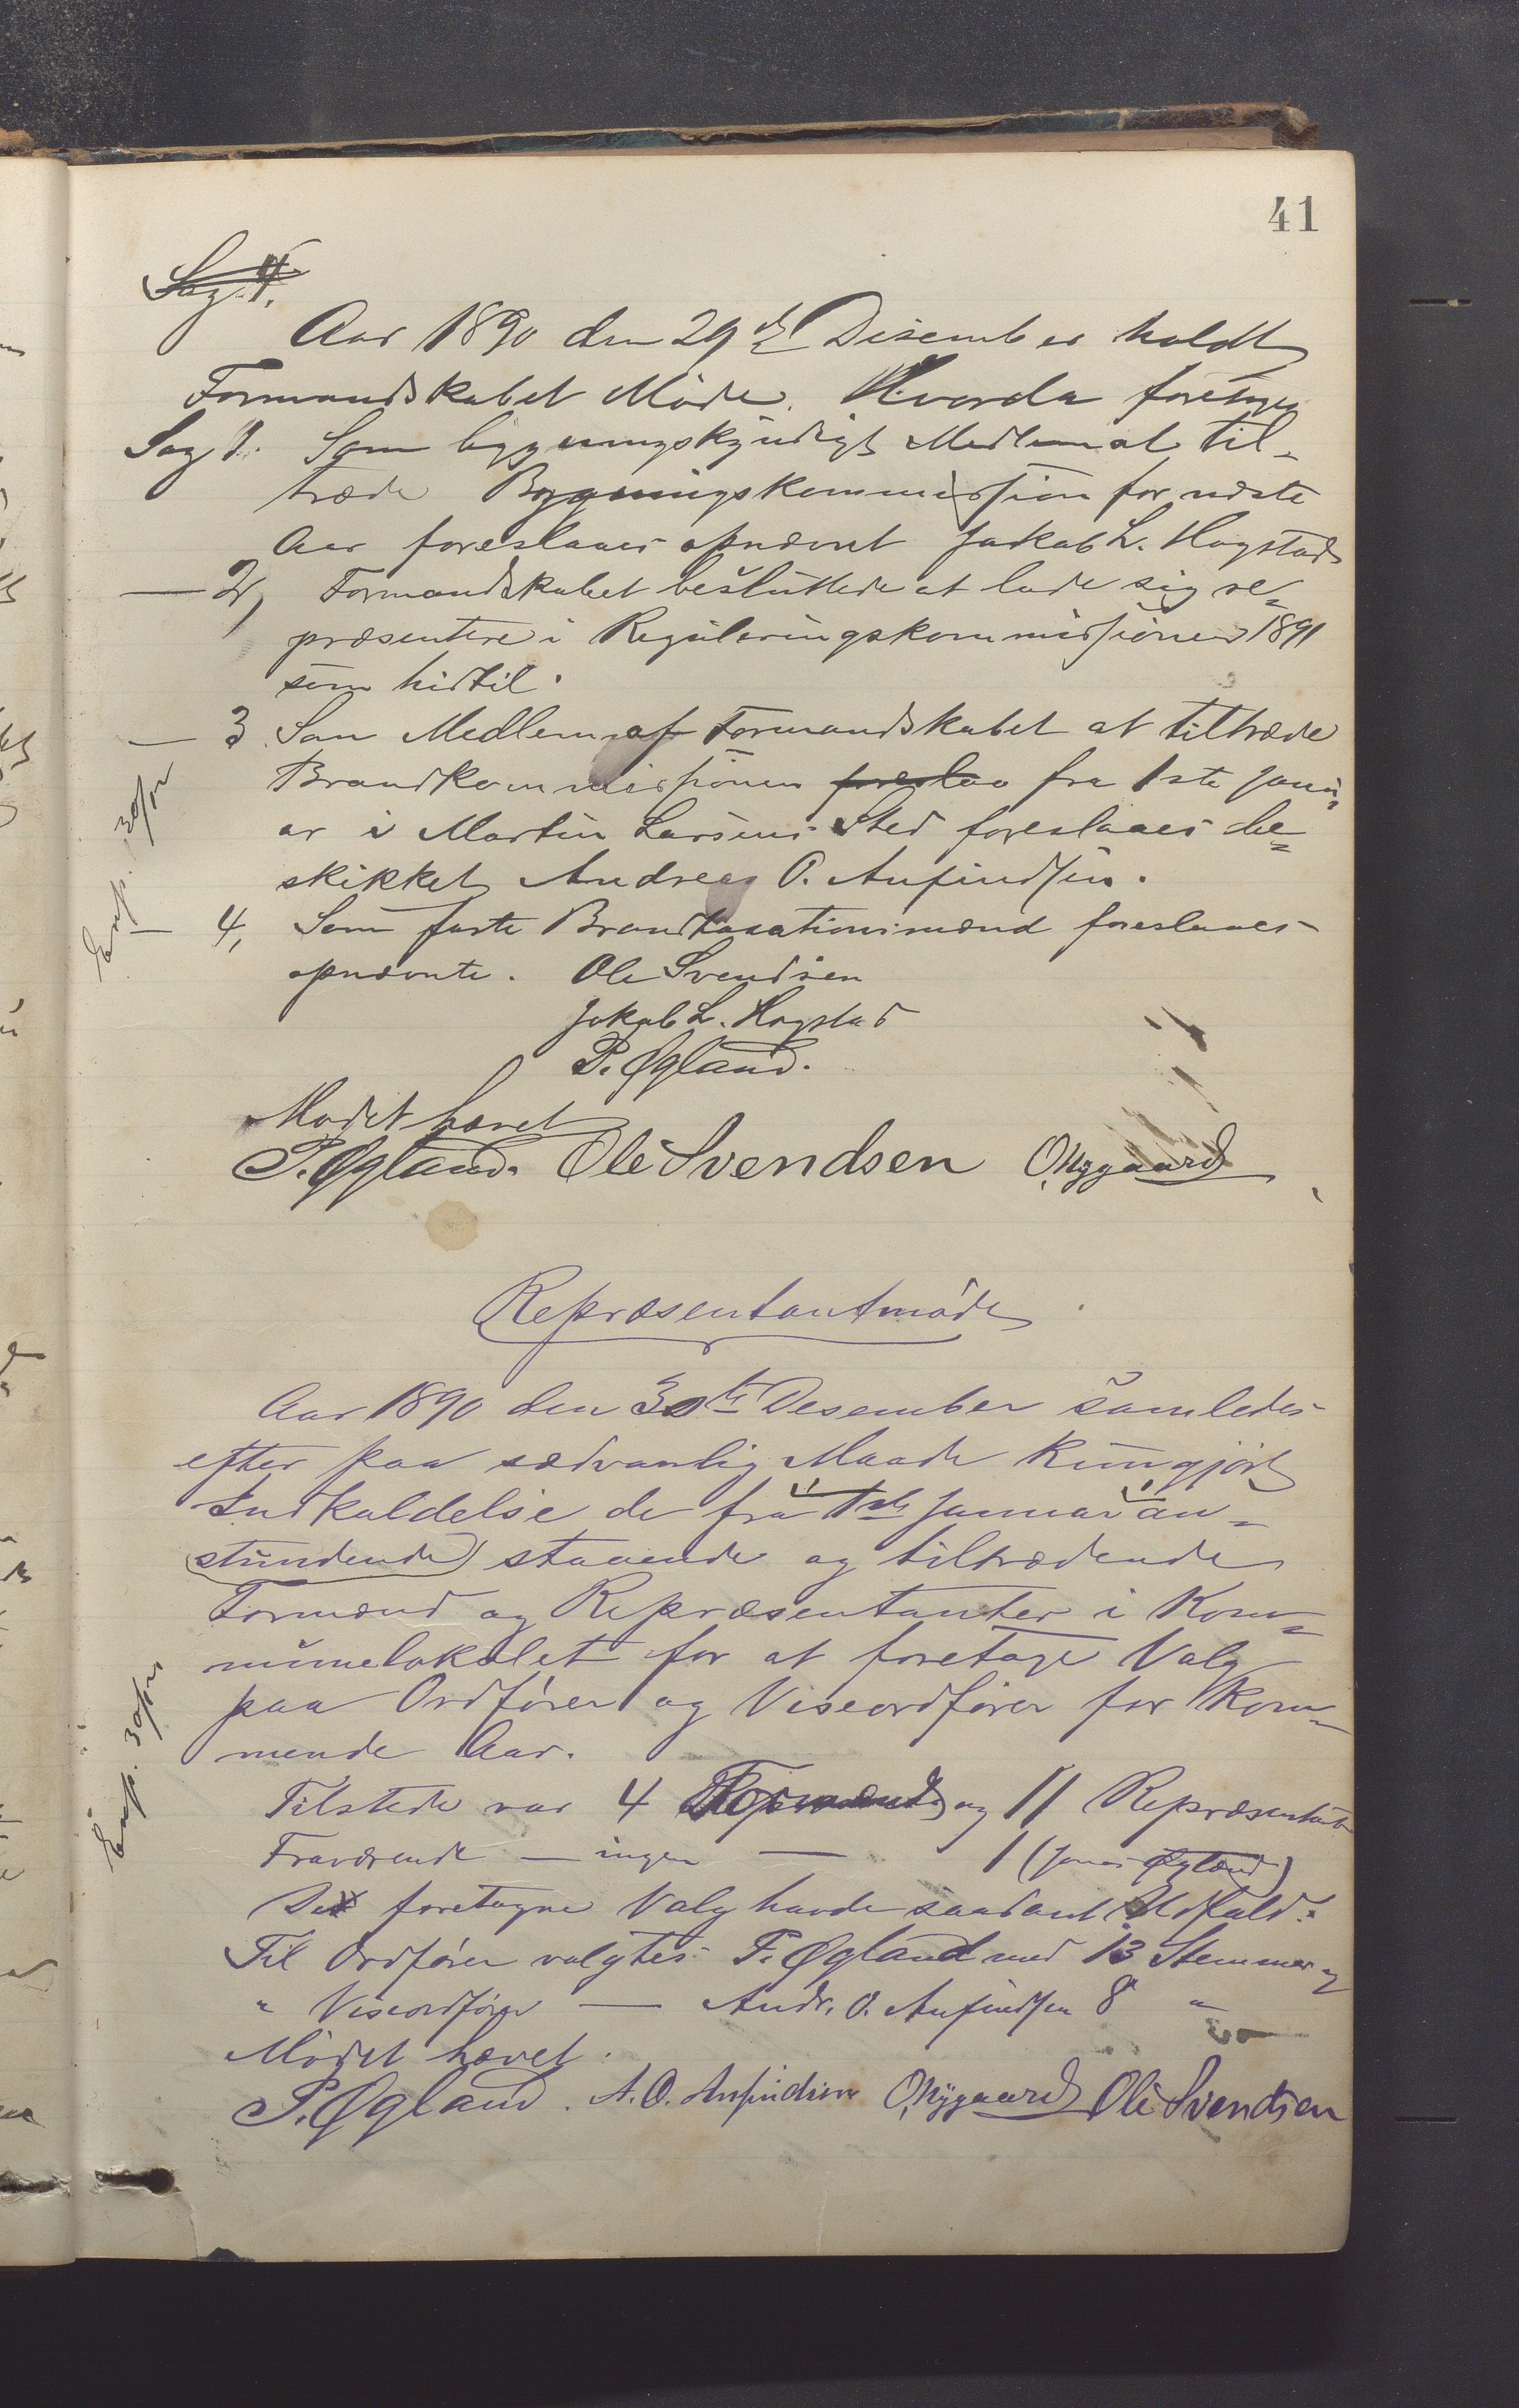 41
Sag 1.
Aar 1890 den 29de Disember holdt
Formandskabet Möde. Hvorda foretoges
Sag 1. Som bygningskyndigt Medlem at til-
træde Bygningskommissjion for næste
Aar foreslaaes opnævnt Jakob L. Hogstad
— 2, Formandskabet besluttede at lade sig re-
præsentere i Reguleringskommissjionen 1891
som hidtil.
— 3. Som Medlem af Formandskabet at tiltræde
Brandkommissjionen foreslaa fra 1ste Janu-
ar i Martin Larsens Sted foreslaaes be-
skikket Andreas O. Anfindsen.
— 4, Som faste Brandtaxationsmænd foreslaaes
opnævnte. Ole Svendsen
Jakob L. Hogstad
P. Øgland.
Mødet hævet
P. Øgland. Ole Svendsen O. Nygaard
Repræsentantmöde
Aar 1890 den 30te Desember samledes
efter paa sædvanlig Maade kungjort
Indkaldelse de fra 1ste Januar an-
stundende staaende og tiltrædende
Formænd og Repræsentanter i Kom-
munelokalet for at foretage Valg
paa Ordförer og Viseordförer for kom-
mende Aar.
Tilstede var 4 Formænd og 11 Repræsentanter
Fraværende — ingen — 1 (Jonas Øgland)
Det foretagne Valg havde saadant Udfald:
Til Ordförer valgtes P. Øgland med 13 Stemmer og
" Viseordförer — Andr. O. Anfindsen 8 "
Mödet hævet.
P. Øgland. A. O. Anfindsen O. Nygaard Ole Svendsen